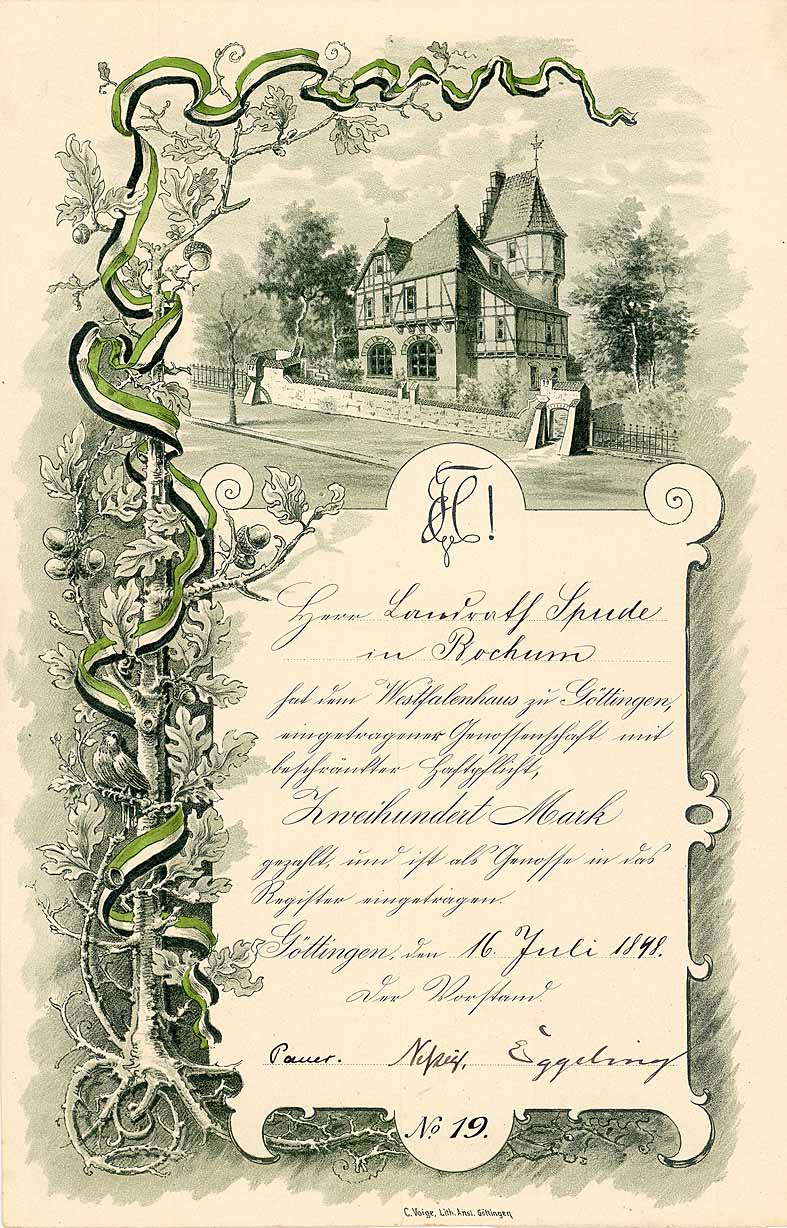 Herr Landrath Spude
in Bochum
hat dem Westfalenhaus zu Göttingen,
eingetragener Genossenschaft mit
beschränkter Haftpflicht,
Zweihundert Mark
gezahlt, und ist als Genosse in das
Register eingetragen.
Göttingen, den 16. Juli 1898.
Der Vorstand.
Eggeling
No 19.
C. Voige, Lith. Anst. Göttingen